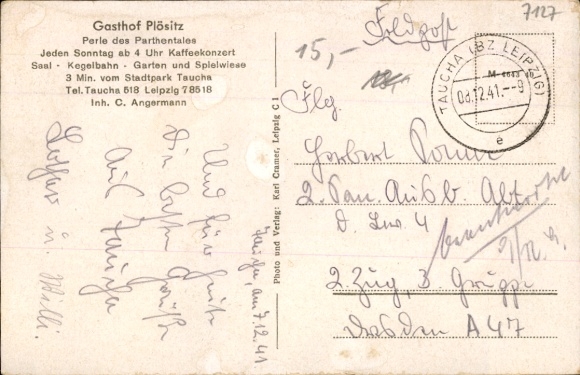 Gasthof Plösitz
Perle des Parthentales
Jeden Sonntag ab 4 Uhr Kaffeekonzert
Saal · Kegelbahn · Garten und Spielwiese
3 Min. vom Stadtpark Taucha
Tel. Taucha 518 Leipzig 78518
Inh. C. Angermann
Und
die besten Grüße
aus Taucha
Lothar u. Willi.
Taucha, am 7.12.41
Photo und Verlag: Karl Cramer, Leipzig C 1
7127
15,-
Feldpost
TAUCHA (BZ LEIPZIG)
08.12.41.--9
e
Flg.
Herbert
2.
D. Lw. 4
beantwortet
2. Zug, 3. Gruppe
Dresden A 47